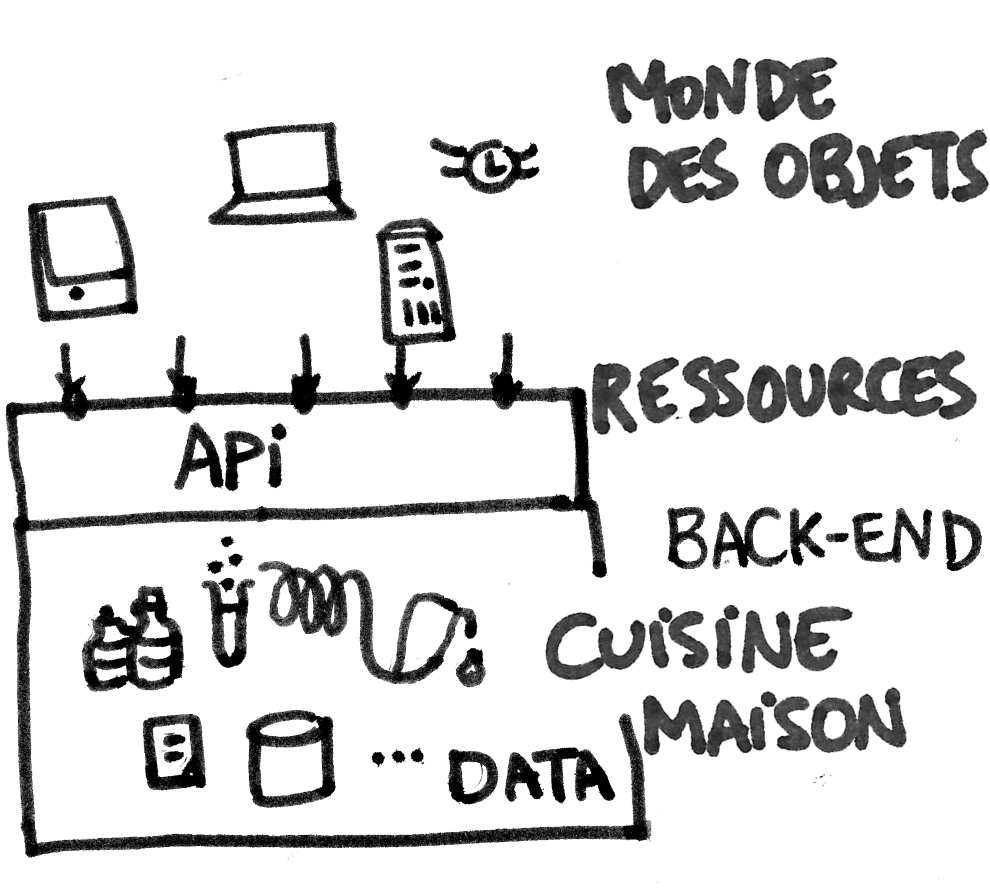 MONDE
DES OBJETS
RESSOURCES
APi
BACK-END
CUiSiNE
MAiSON
... DATA